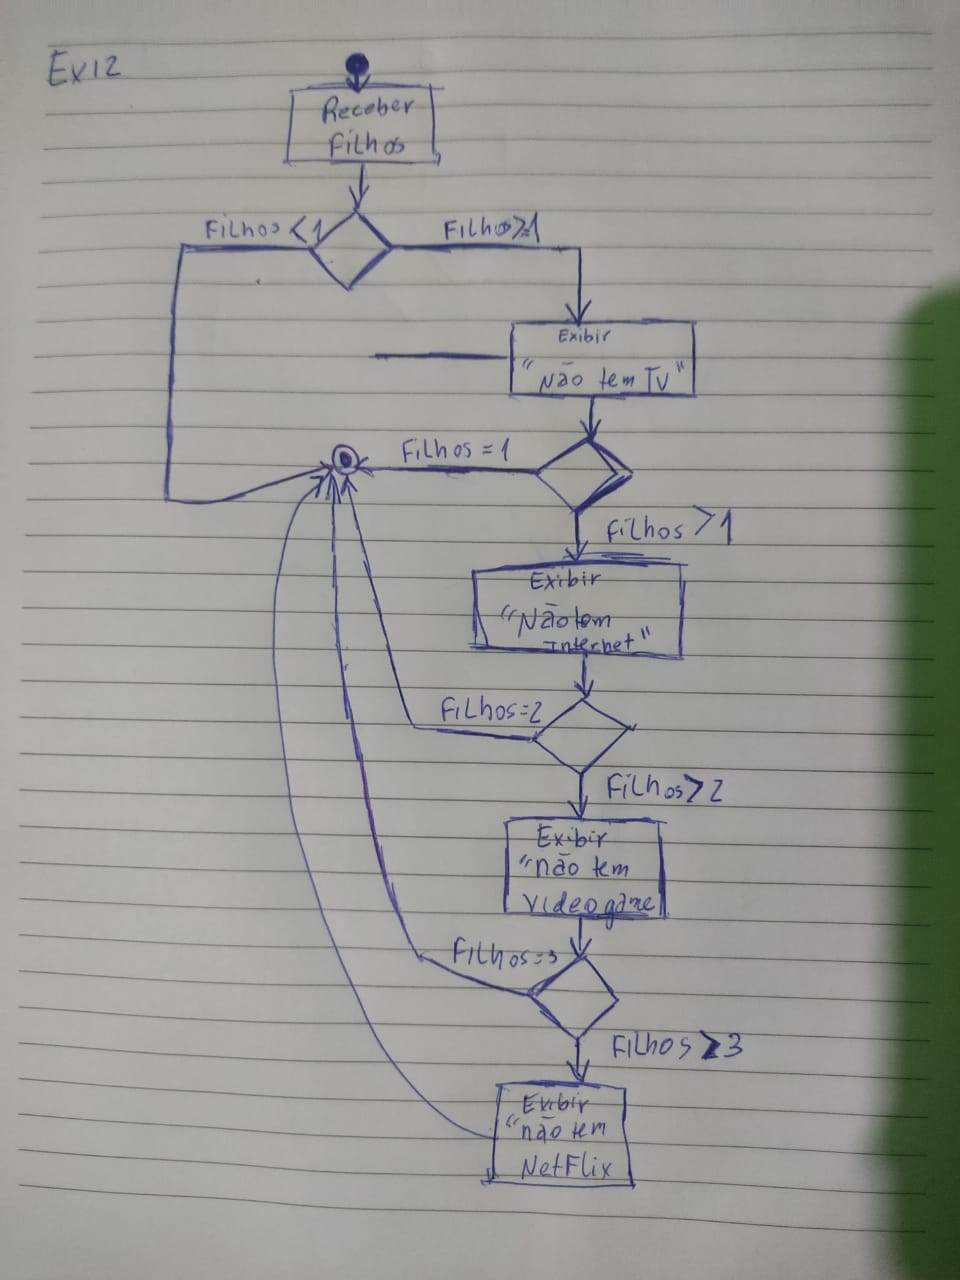 Ex12
Receber
Filhos
Filhos < 1
Filhos ≥ 1
Exibir
"Não tem TV"
Filhos = 1
Filhos > 1
Exibir
"Não tem
Internet"
Filhos=2
Filhos > 2
Exibir
"não tem
videogame
Filhos=3
Filhos > 3
Exibir
"não tem
NetFlix